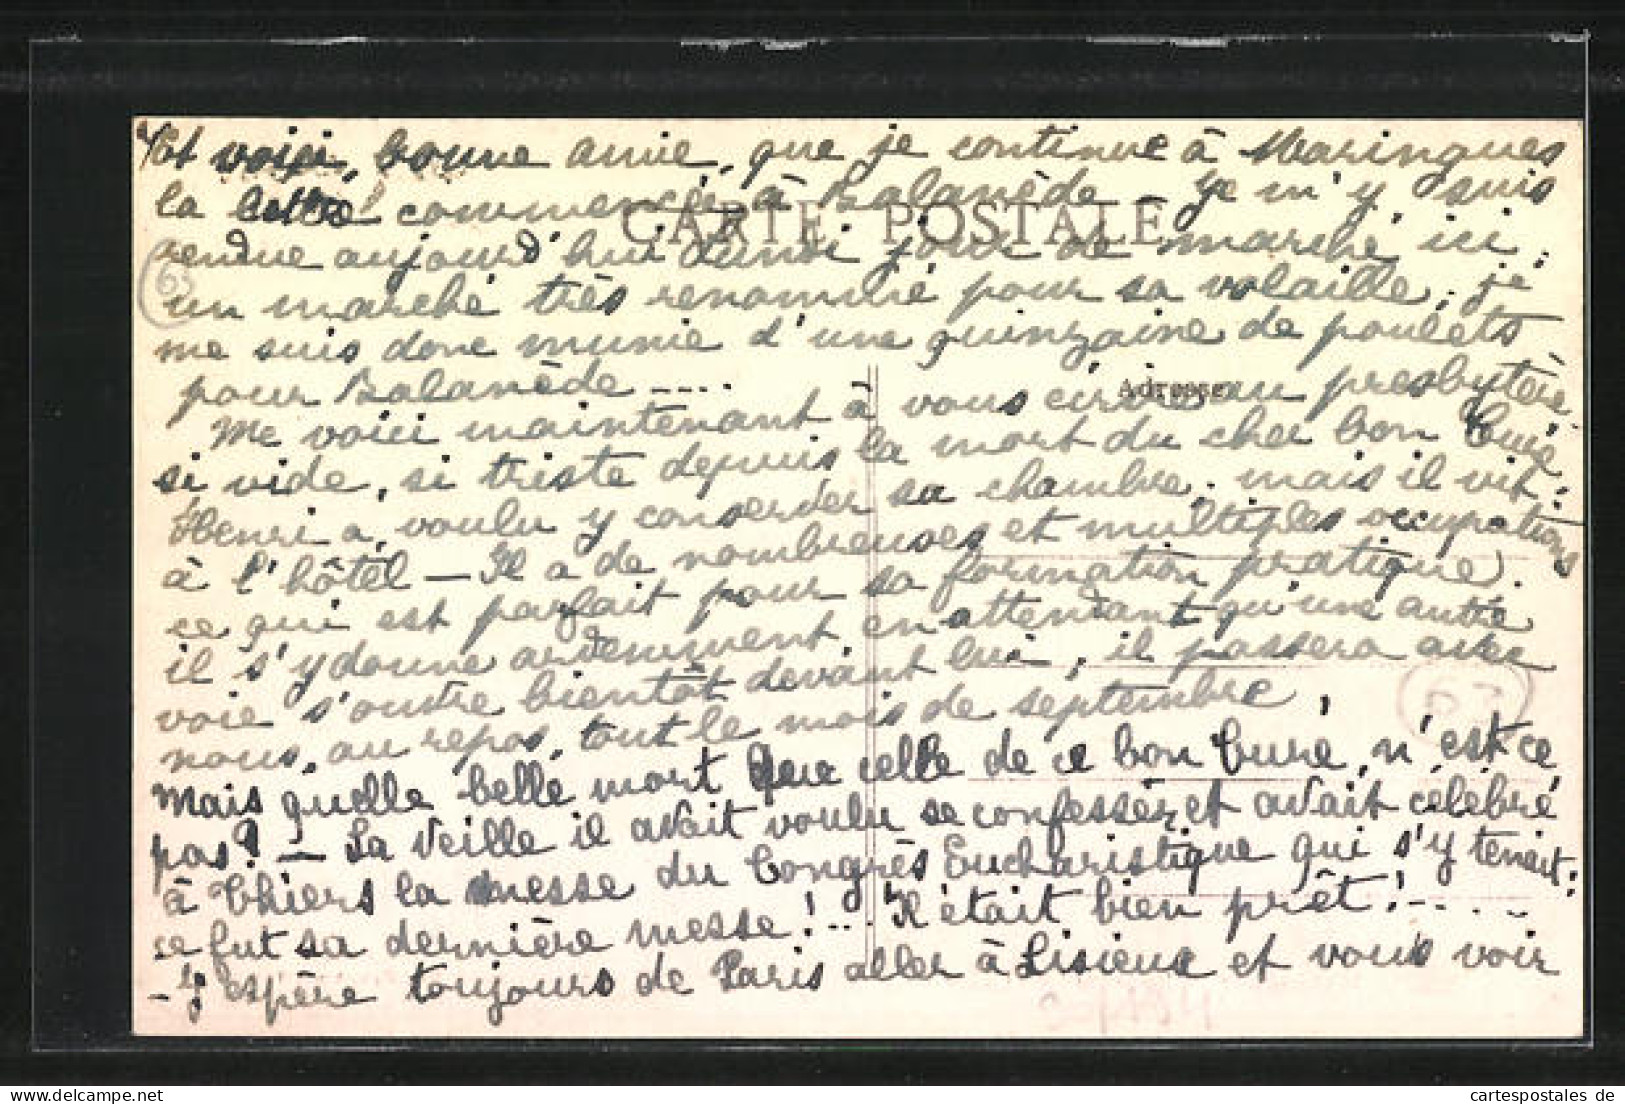 Et voici, bonne amie, que je continue à Maringues
la lettre commencée à Balanède. Je m'y suis
CARTE POSTALE
rendue aujourd'hui Lundi jour de marché, ici,
un marché très renommé pour sa volaille, je
me suis donc munie d'une quinzaine de poulets
pour Balanède ....
Adresse
Me voici maintenant à vous écrire au presbytère
si vide, si triste depuis la mort du cher bon Curé,
Henri a voulu y conserver sa chambre, mais il vit
à l'hôtel — Il a de nombreuses et multiples occupations
ce qui est parfait pour sa formation pratique.
il s'y donne ardemment, en attendant qu'une autre
voie s'ouvre bientôt devant lui, il passera avec
nous, au repos, tout le mois de septembre,
Mais quelle belle mort que celle de ce bon Curé, n'est ce
pas? — La veille il avait voulu se confesser et avait célébré
à Thiers la messe du Congrès Eucharistique qui s'y tenait:
ce fut sa dernière messe!... Il était bien prêt!....
— J'espère toujours de Paris aller à Lisieux et vous voir
63